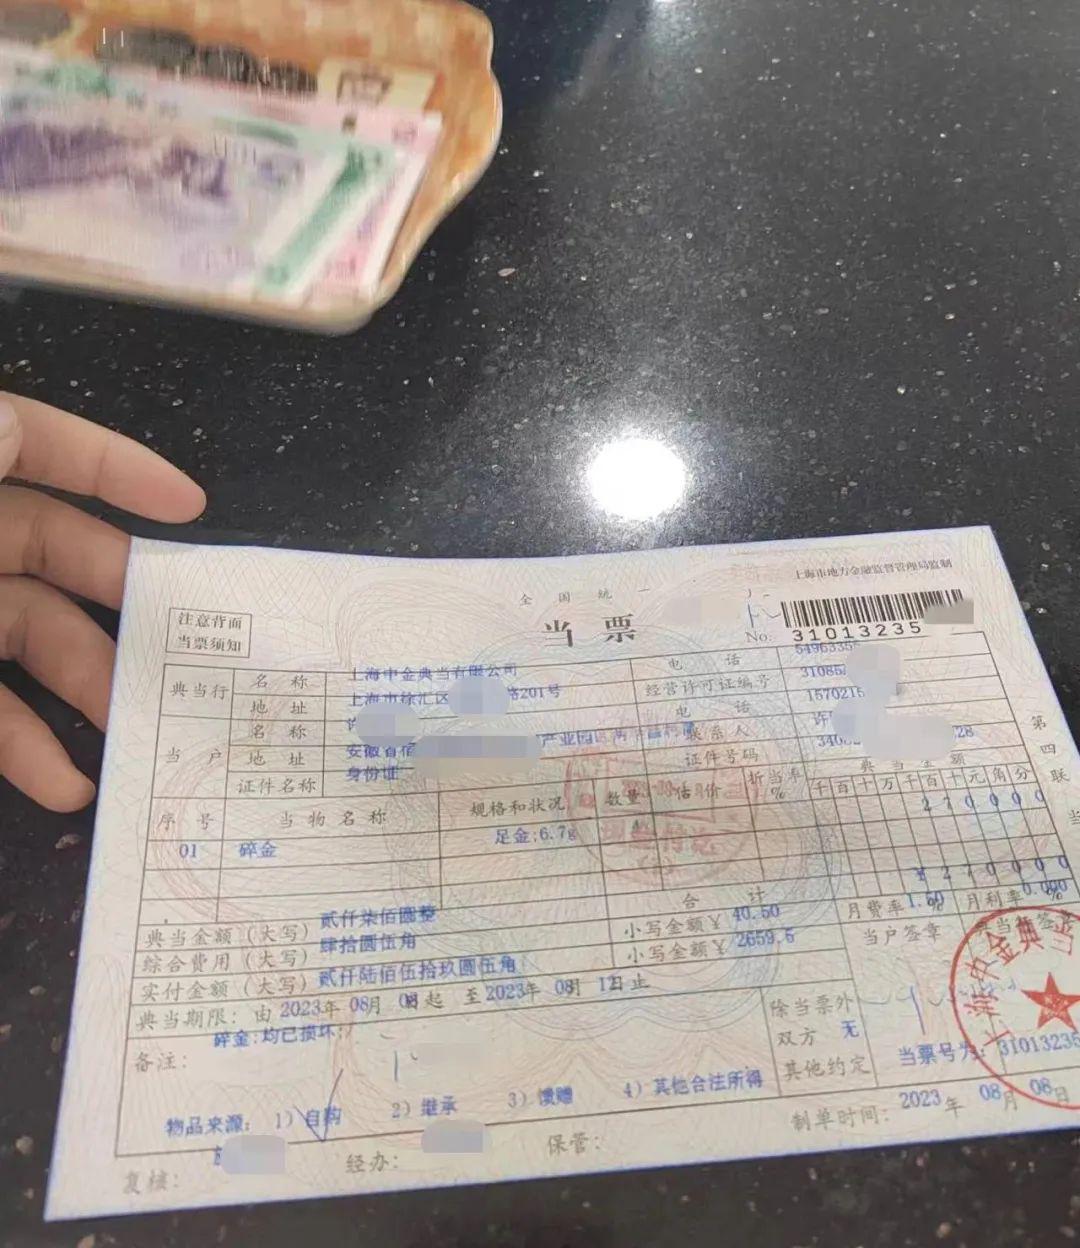 上海市地方金融监督管理局监制
全国统一
当票
注意背面
当票须知
No: 31013235
典当行 名称 上海申金典当有限公司 电话 5496335
地址 上海市徐汇区 路201号 经营许可证编号 3108
当户 名称 许 电话 1570215
地址 安徽省宿 产业园 联系人 许
证件名称 身份证 证件号码 340 28
序号 当物名称 规格和状况 数量 估价 折当率% 典当金额
千百十万千百十元角分
01 碎金 足金;6.7g 270000
合计 ¥270000
典当金额(大写) 贰仟柒佰圆整
综合费用(大写) 肆拾圆伍角 小写金额¥ 40.50 月费率1.50% 月利率0.000%
实付金额(大写) 贰仟陆佰伍拾玖圆伍角 小写金额¥ 2659.5 当户签章 典当行签章
典当期限:由2023年08月08起 至2023年08月1 日止
备注: 碎金:均已损坏;
除当票外
双方 无
其他约定
当票号为:31013235
物品来源: 1)自购 2)继承 3)馈赠 4)其他合法所得
制单时间: 2023年08月08日
复核: 经办: 保管:
第四联
上海申金典当